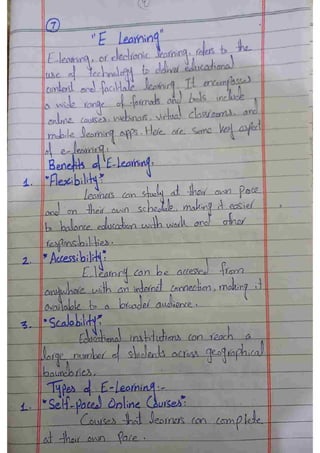 7
"E Learning"
E-learning, or electronic learning, refers to the
use of technology to deliver educational
content and facilitate learning. It encompasses
a wide range of formats and tools include
online courses, webinars, virtual classrooms, and
mobile learning apps. Here are some key aspect
of e-learning:
Benefits of E-Learning:
1. "Flexibility":
Learners can study at their own pace
and on their own schedule, making it easier
to balance education with work and other
responsibilities.
2. "Accessibility":
E.learning can be accessed from
anywhere with an internet connection, making it
available to a broader audience.
3. "Scalability":
Educational institutions can reach a
large number of students across geographical
boundaries.
Types of E-Learning:-
1. "Self-Paced Online Courses:
Courses that learners can complete
at their own Pace.